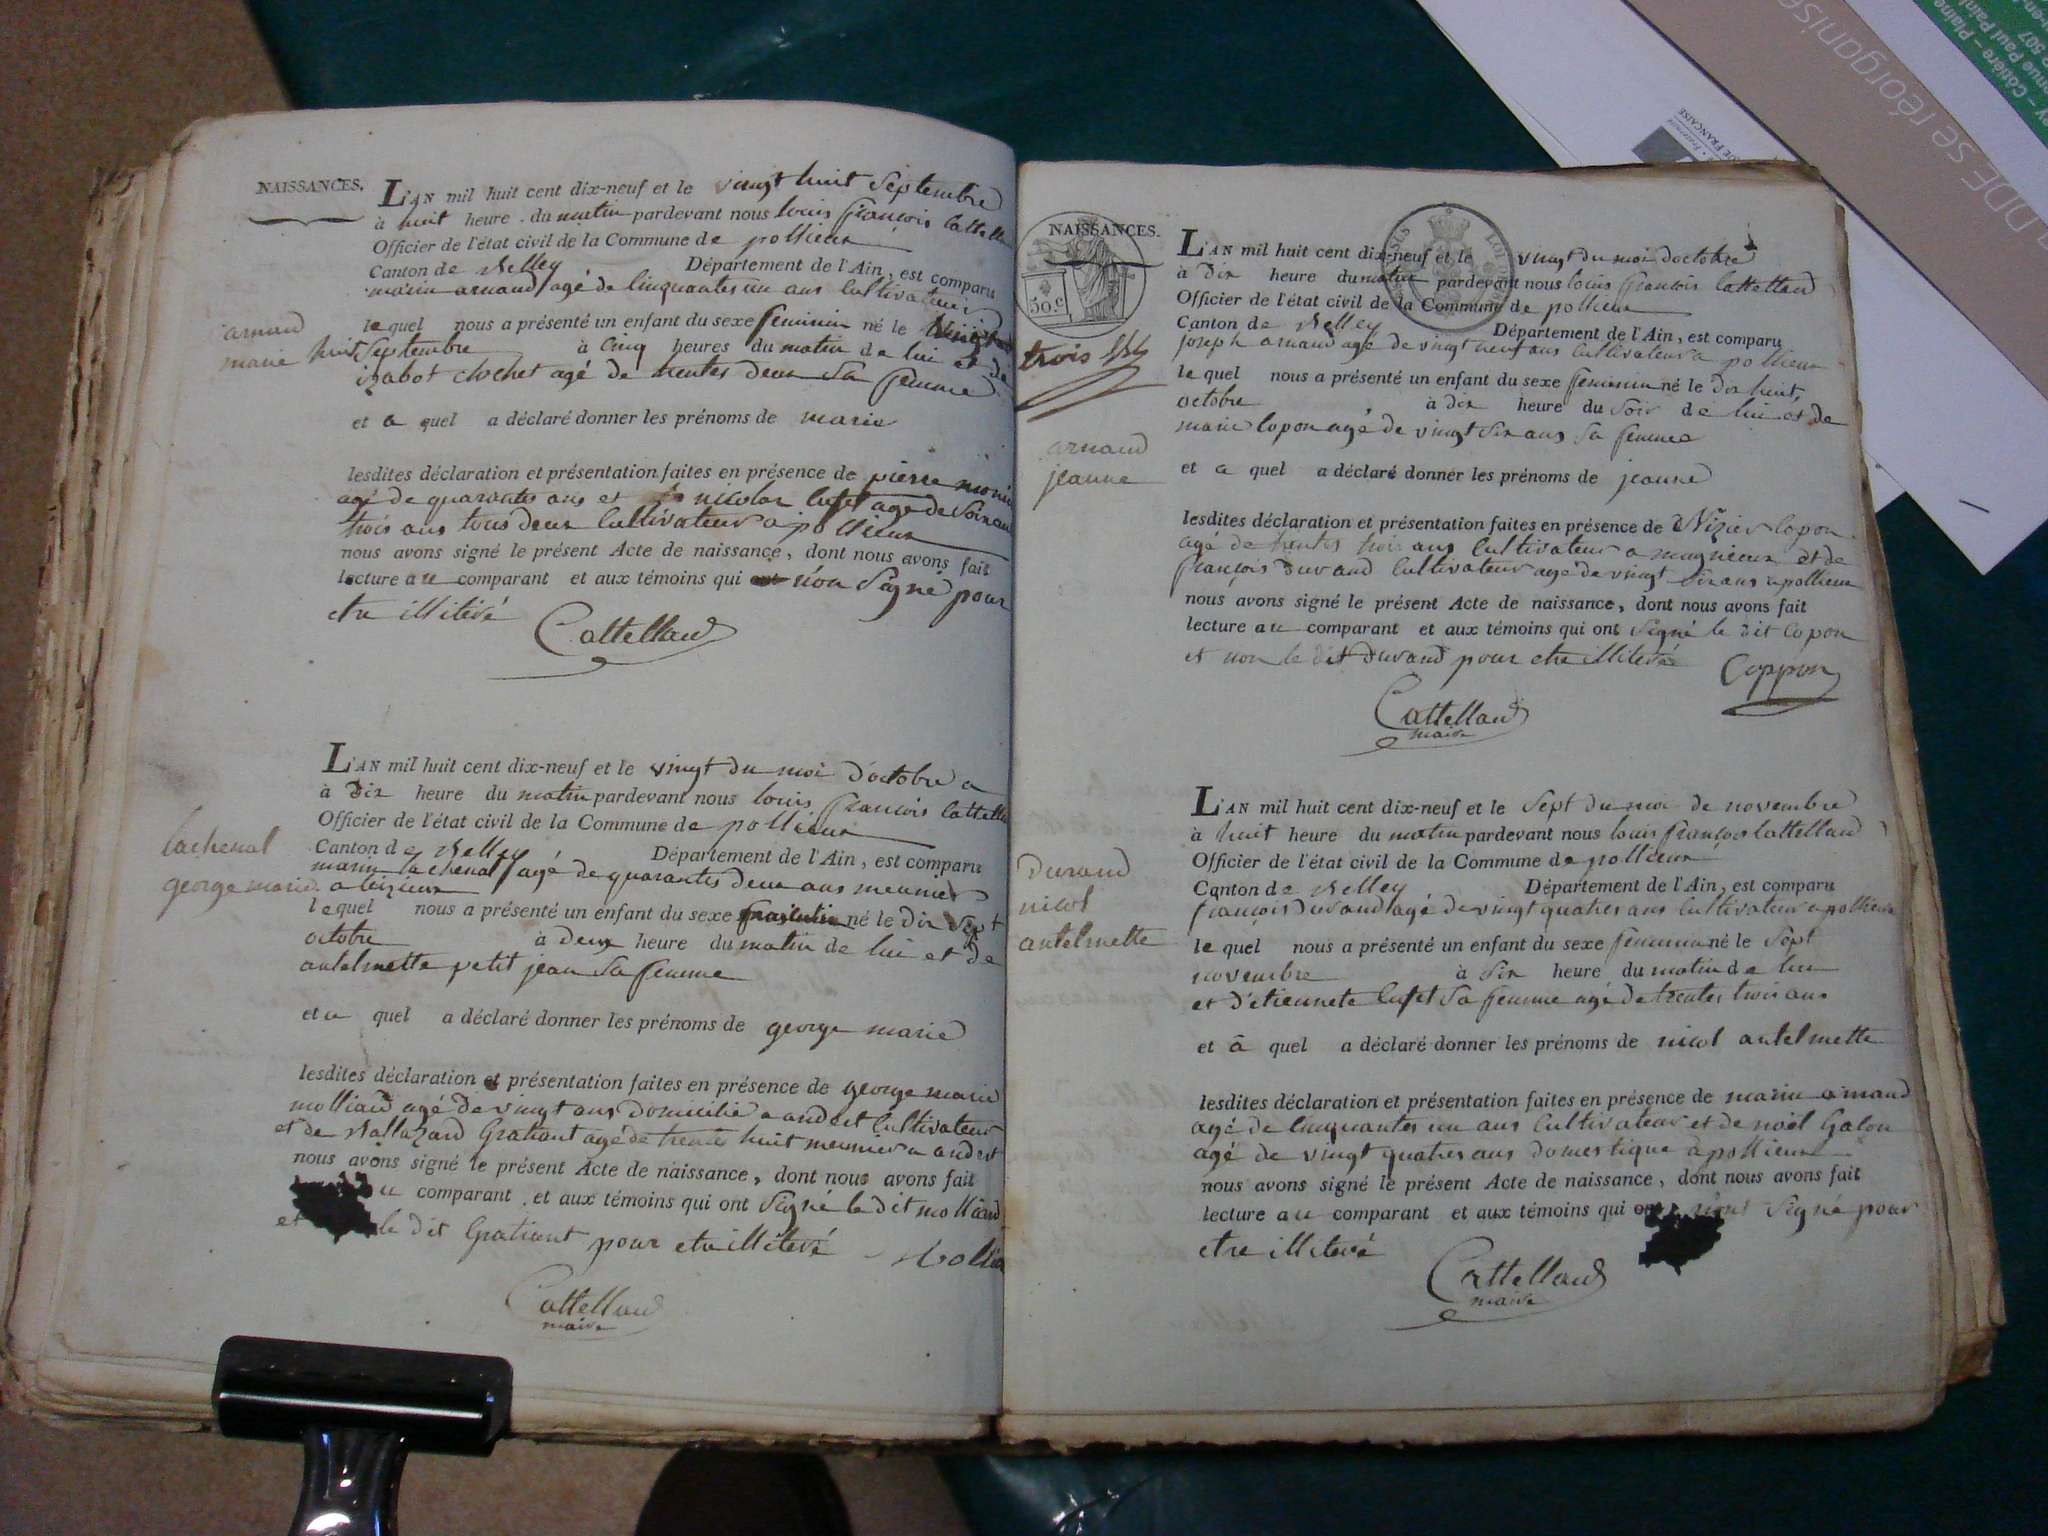 NAISSANCES.
L'AN mil huit cent dix-neuf et le vingt huit Septembre
à huit heure du matin pardevant nous louis françois Cattella
Officier de l'état civil de la Commune de pollieux
Canton de Belley Département de l'Ain, est comparu
marin arnaud agé de Cinquantes un ans Cultivateur
arnaud
marie
le quel nous a présenté un enfant du sexe feminin né le
huit Septembre à Cinq heures du matin de lui et de
izabot clochet agé de trentes deux Sa femme
et a quel a déclaré donner les prénoms de marie
lesdites déclaration et présentation faites en présence de pierre
agé de quarantes ans et nicolas Cufet agé de Soixan
trois ans tous deux Cultivateur a pollieux
nous avons signé le présent Acte de naissance, dont nous avons fait
lecture au comparant et aux témoins qui ont non Signé pour
etre illiteré
Cattelland
L'AN mil huit cent dix-neuf et le vingt du moi d'octobre a
à Dix heure du matin pardevant nous louis françois Cattella
Officier de l'état civil de la Commune de pollieux
Canton de Belley Département de l'Ain, est comparu
lachenal
george marie
marin lachenal agé de quarantes deux ans meunier
a
le quel nous a présenté un enfant du sexe né le dix Sept
octobre à deux heure du matin de lui et de
antelmette petit jean Sa femme
et a quel a déclaré donner les prénoms de george marie
lesdites déclaration et présentation faites en présence de george marie
molliand agé de vingt ans domicilié a andert Cultivateur
et de Ballazard Gratiant agé de trente huit meunier a andert
nous avons signé le présent Acte de naissance, dont nous avons fait
au comparant et aux témoins qui ont Signé le dit molliand
et le dit Gratiant pour etre illiteré
Mollia
Cattelland
maire
NAISSANCES.
50.c
trois
L'AN mil huit cent dix-neuf et le vingt du moi d'octobre
à Dix heure du matin pardevant nous louis françois Cattelland
Officier de l'état civil de la Commune de pollieux
Canton de Belley Département de l'Ain, est comparu
joseph arnaud agé de vingt neuf ans Cultivateur a pollieux
le quel nous a présenté un enfant du sexe feminin né le dix huit
octobre à dix heure du Soir de lui et de
marie Copon agé de vingt Six ans Sa femme
arnaud
jeanne
et a quel a déclaré donner les prénoms de jeanne
lesdites déclaration et présentation faites en présence de Nizier Copon
agé de trentes trois ans Cultivateur a magnieux et de
françois Durand Cultivateur agé de vingt Six ans a pollieux
nous avons signé le présent Acte de naissance, dont nous avons fait
lecture au comparant et aux témoins qui ont Signé le dit Copon
et non le dit Durand pour etre illiteré
Coppon
Cattelland
maire
L'AN mil huit cent dix-neuf et le Sept du moi de novembre
à huit heure du matin pardevant nous louis françois Cattelland
Officier de l'état civil de la Commune de pollieux
Canton de Belley Département de l'Ain, est comparu
françois Durand agé de vingt quatres ans Cultivateur a pollieux
durand
nicol
antelmette
le quel nous a présenté un enfant du sexe feminin né le Sept
novembre à Six heure du matin de lui
et d'étiennete Cufet Sa femme agé de trentes trois ans
et à quel a déclaré donner les prénoms de nicol antelmette
lesdites déclaration et présentation faites en présence de marin arnaud
agé de Cinquantes un ans Cultivateur et de noël Galon
agé de vingt quatres ans domestique à pollieux
nous avons signé le présent Acte de naissance, dont nous avons fait
lecture au comparant et aux témoins qui ont n'ont Signé pour
etre illiteré
Cattelland
maire
DDE se réorganise
Côtière - Plaine
507